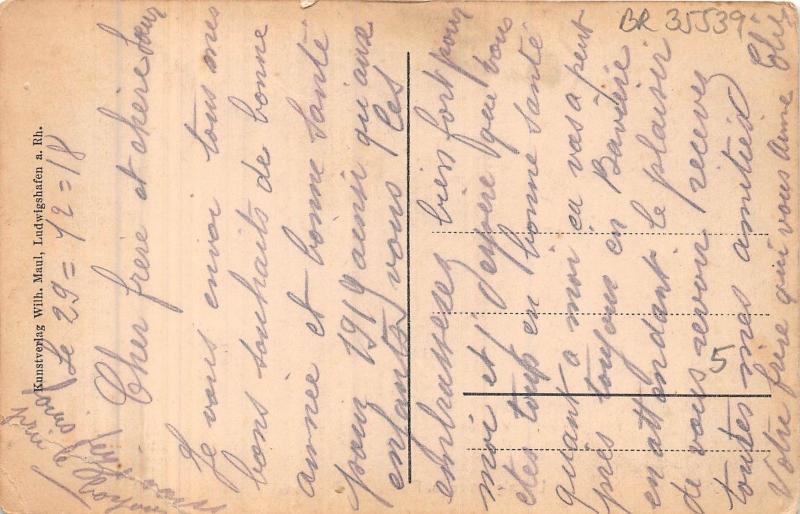 BR 35539
Kunstverlag Wilh. Maul, Ludwigshafen a. Rh.
Le 29 = 12 = 18
Cher frère et chère Sœur
Je vous envoi tous mes
bons souhaits de bonne
année et bonne santé
pour 1919 ainsi qu'aux
enfants vous les
enbrasserez bien fort pour
moi et j'espère que vous
êtes tous en bonne santé
quant a moi ça vas a peut
près toujours en Bavière
en attendant le plaisir
de vous revoir recevez
toutes mes amitiés
Votre frère qui vous aime
5